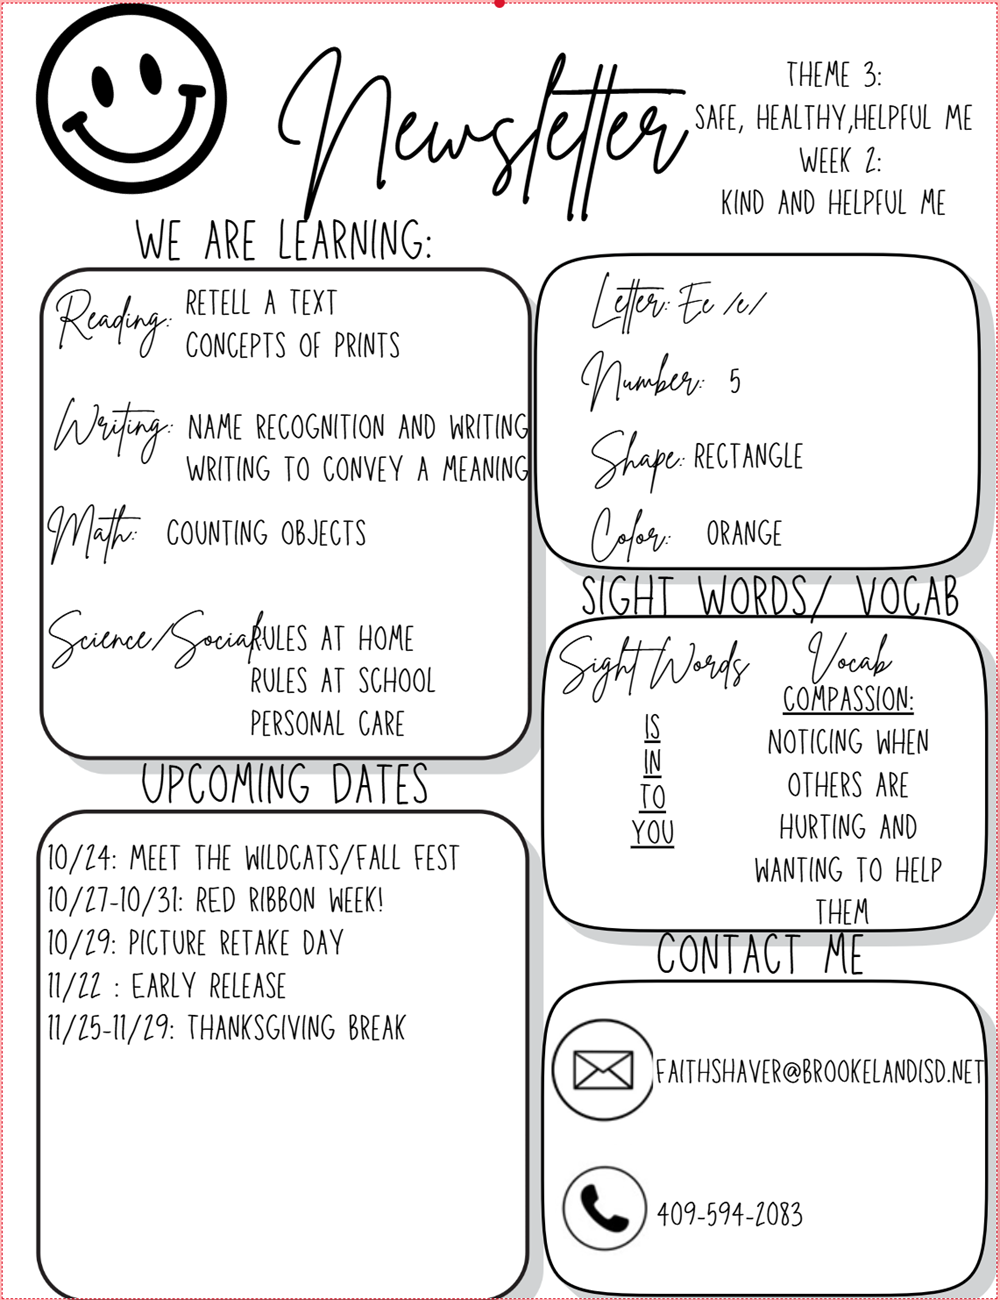 Newsletter
THEME 3:
SAFE, HEALTHY,HELPFUL ME
WEEK 2:
KIND AND HELPFUL ME
WE ARE LEARNING:
Reading: RETELL A TEXT
CONCEPTS OF PRINTS
Writing: NAME RECOGNITION AND WRITING
WRITING TO CONVEY A MEANING
Math: COUNTING OBJECTS
Science/Social: RULES AT HOME
RULES AT SCHOOL
PERSONAL CARE
Letter: Ee /e/
Number: 5
Shape: RECTANGLE
Color: ORANGE
SIGHT WORDS/ VOCAB
Sight Words
IS
IN
TO
YOU
Vocab
COMPASSION:
NOTICING WHEN
OTHERS ARE
HURTING AND
WANTING TO HELP
THEM
UPCOMING DATES
10/24: MEET THE WILDCATS/FALL FEST
10/27-10/31: RED RIBBON WEEK!
10/29: PICTURE RETAKE DAY
11/22 : EARLY RELEASE
11/25-11/29: THANKSGIVING BREAK
CONTACT ME
FAITHSHAVER@BROOKELANDISD.NET
409-594-2083